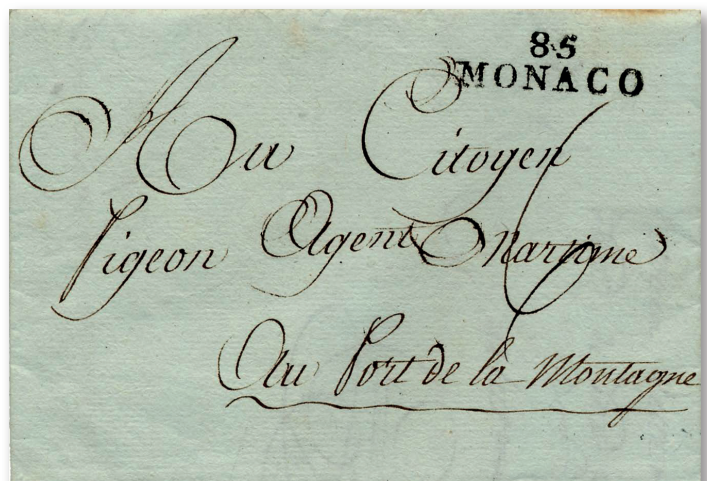 85
MONACO
Au Citoyen
Pigeon Agent Maritime
Au Port de la Montagne